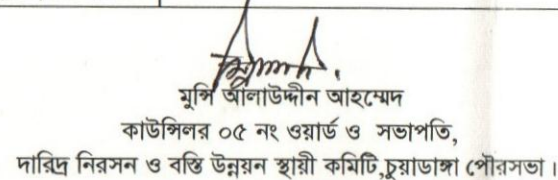 মুন্সি আলাউদ্দীন আহম্মেদ
কাউন্সিলর ০৫ নং ওয়ার্ড ও সভাপতি,
দারিদ্র নিরসন ও বস্তি উন্নয়ন স্থায়ী কমিটি,চুয়াডাঙ্গা পৌরসভা।